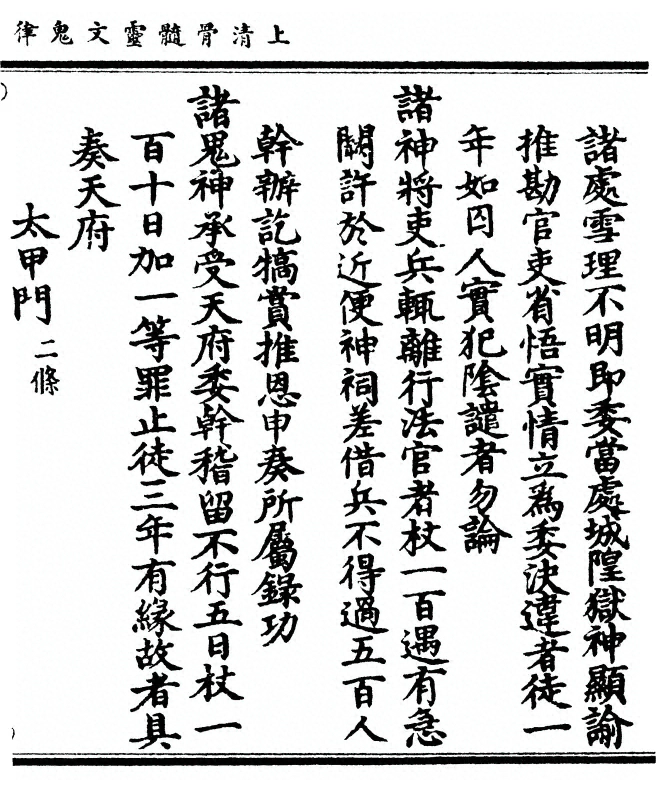 上清骨髓靈文鬼律
諸處雪理不明即委當處城隍獄神顯諭
推勘官吏省悟實情立爲委決違者徒一
年如囚人實犯陰譴者勿論
諸神將吏兵輒離行法官者杖一百遇有急
闕許於近便神祠差借兵不得過五百人
幹辦訖犒賞推恩申奏所屬錄功
諸鬼神承受天府委幹稽留不行五日杖一
百十日加一等罪止徒三年有緣故者具
奏天府
太甲門二條